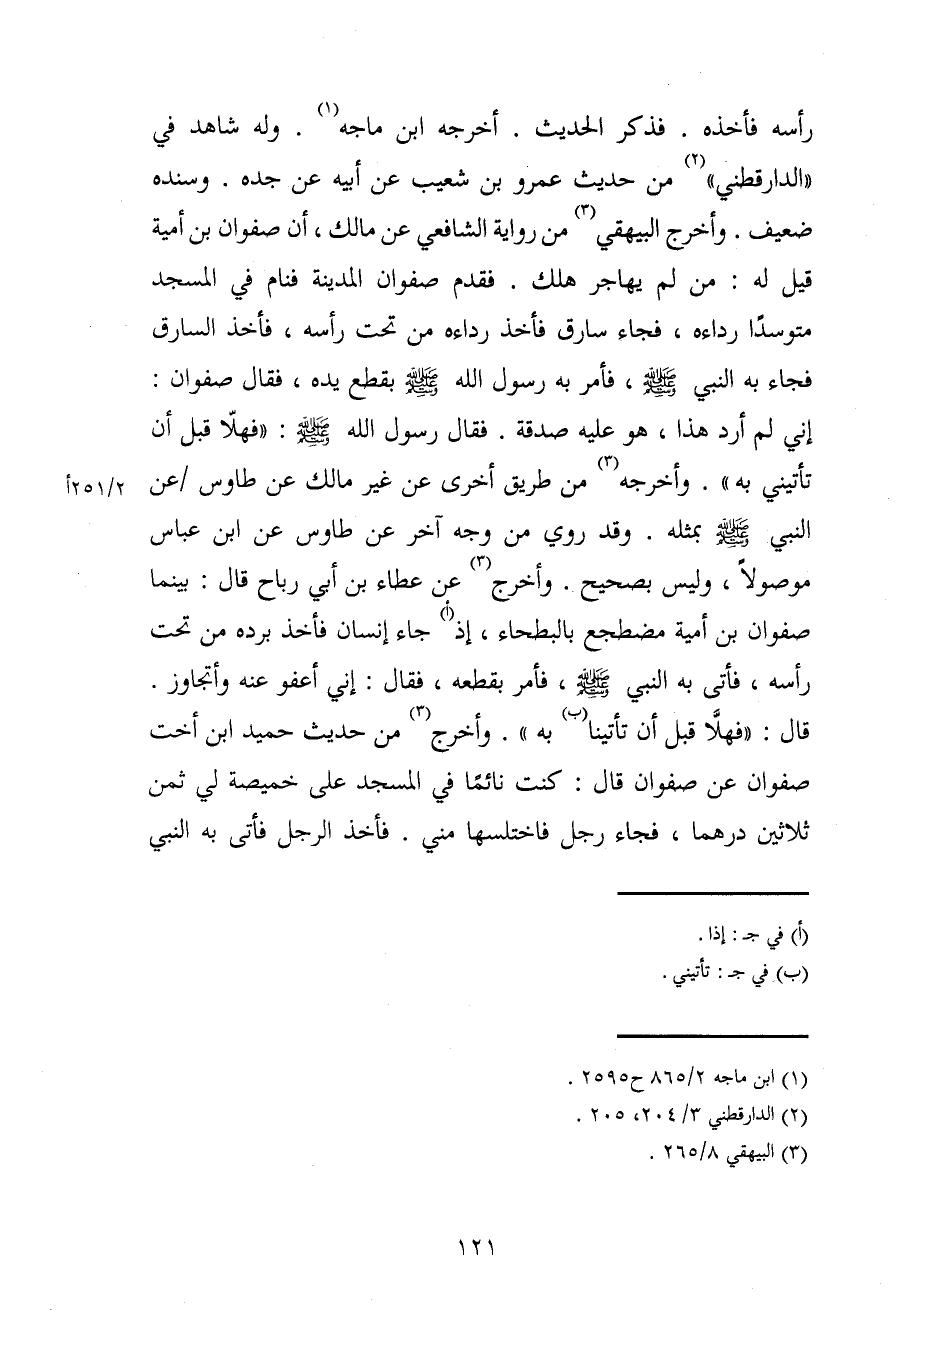 رأسه فأخذه . فذكر الحديث . أخرجه ابن ماجه(١) . وله شاهد في
«الدارقطني»(٢) من حديث عمرو بن شعيب عن أبيه عن جده . وسنده
ضعيف . وأخرج البيهقي(٣) من رواية الشافعي عن مالك ، أن صفوان بن أمية
قيل له : من لم يهاجر هلك . فقدم صفوان المدينة فنام في المسجد
متوسدًا رداءه ، فجاء سارق فأخذ رداءه من تحت رأسه ، فأخذ السارق
فجاء به النبي ﷺ ، فأمر به رسول الله ﷺ بقطع يده ، فقال صفوان :
إني لم أرد هذا ، هو عليه صدقة . فقال رسول الله ﷺ : «فهلّا قبل أن
تأتيني به» . وأخرجه(٣) من طريق أخرى عن غير مالك عن طاوس /عن ٢٥١/٢أ
النبي ﷺ بمثله . وقد روي من وجه آخر عن طاوس عن ابن عباس
موصولاً ، وليس بصحيح . وأخرج(٣) عن عطاء بن أبي رباح قال : بينما
صفوان بن أمية مضطجع بالبطحاء ، إذ(أ) جاء إنسان فأخذ برده من تحت
رأسه ، فأتى به النبي ﷺ ، فأمر بقطعه ، فقال : إني أعفو عنه وأتجاوز .
قال : «فهلَّا قبل أن تأتينا(ب) به» . وأخرج(٣) من حديث حميد ابن أخت
صفوان عن صفوان قال : كنت نائمًا في المسجد على خميصة لي ثمن
ثلاثين درهما ، فجاء رجل فاختلسها مني . فأخذ الرجل فأتى به النبي
(أ) في جـ : إذا .
(ب) في جـ : تأتيني .
(١) ابن ماجه ٨٦٥/٢ ح٢٥٩٥ .
(٢) الدارقطني ٣/ ٢٠٤، ٢٠٥ .
(٣) البيهقي ٢٦٥/٨ .
١٢١